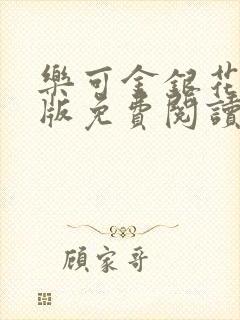 樂可金銀花
版免費閱讀
顧家哥